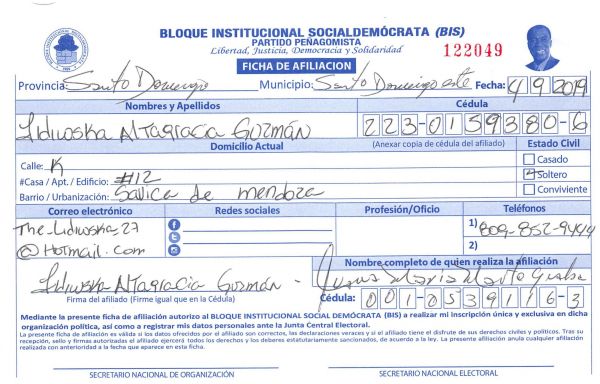 BLOQUE INSTITUCIONAL SOCIALDEMÓCRATA (BIS)
PARTIDO PEÑAGOMISTA
Libertad, Justicia, Democracia y Solidaridad
122049
FICHA DE AFILIACION
Provincia: Santo Domingo Municipio: Santo Domingo este Fecha: 4/9/2019
Nombres y Apellidos Cédula
Lidwoska Altagracia Guzmán 223-0159380-6
Domicilio Actual (Anexar copia de cédula del afiliado) Estado Civil
Calle: K Casado
#Casa / Apt. / Edificio: #12 Soltero
Barrio / Urbanización: Savica de mendoza Conviviente
Correo electrónico Redes sociales Profesión/Oficio Teléfonos
The_Lidwoska27 1) 809-852-9444
@Hotmail.com 2)
Nombre completo de quien realiza la afiliación
Lidwoska Altagracia Guzmán - Jesus Maria
Firma del afiliado (Firme igual que en la Cédula) Cédula: 001-0539116-3
Mediante la presente ficha de afiliación autorizo al BLOQUE INSTITUCIONAL SOCIAL DEMÓCRATA (BIS) a realizar mi inscripción única y exclusiva en dicha
organización política, así como a registrar mis datos personales ante la Junta Central Electoral.
La presente ficha de afiliación es válida si los datos ofrecidos por el afiliado son correctos, las declaraciones veraces y si el afiliado tiene el disfrute de sus derechos civiles y políticos. Tras su
recepción, sello y firmas autorizadas el afiliado ejercerá todos los derechos y los deberes estatutariamente sancionados, de acuerdo a la ley. La presente afiliación anula cualquier afiliación
realizada con anterioridad a la fecha que aparece en esta ficha.
SECRETARIO NACIONAL DE ORGANIZACIÓN SECRETARIO NACIONAL ELECTORAL